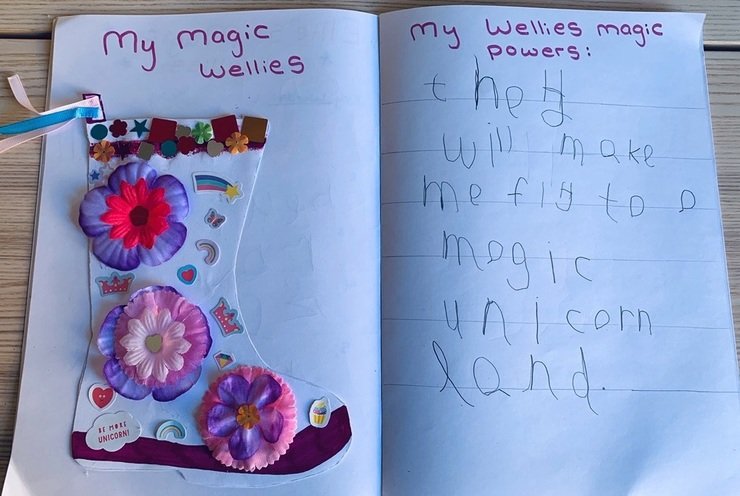 My magic
wellies
BE MORE
UNICORN!
My Wellies magic
powers:
they
will make
me fly to a
magic
unicorn
land.